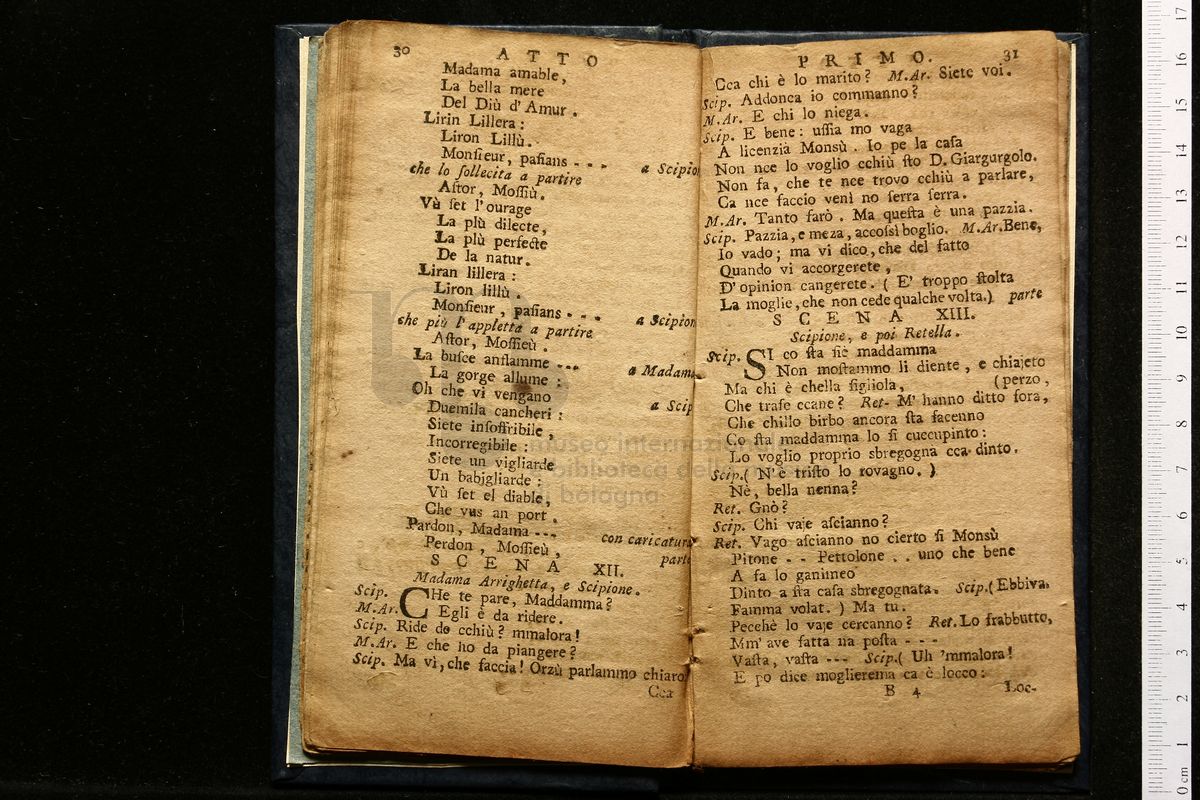 30 ATTO
Madama amable,
La bella mere
Del Diù d'Amur.
Lirin Lillera:
Liron Lillù.
Monsieur, pasians - - - a Scipion
che lo sollecita a partire
Astor, Mossiù.
Vù set l'ourage
La plù dilecte,
La plù perfecte
De la natur.
Liran lillera:
Liron lillù.
Monsieur, pasians - - - a Scipion
che più l'appletta a partire
Astor, Mossieù.
La busce anflamme - - - a Madama
La gorge allume;
Oh che vi vengano
Duemila cancheri: a Scip
Siete insoffribile,
Incorregibile:
Siete un vigliarde
Un babigliarde:
Vù set el diable,
Che vus an port.
Pardon, Madama - - - con caricatura
Perdon, Mossieù, parte
SCENA XII.
Madama Arrighetta, e Scipione.
Scip. CHe te pare, Maddamma?
M.Ar. Egli è da ridere.
Scip. Ride de cchiù? mmalora!
M.Ar. E che ho da piangere?
Scip. Ma vì, che faccia! Orzù parlammo chiaro
Cca
PRIMO. 31
Cca chi è lo marito? M.Ar. Siete voi.
Scip. Addonca io commanno?
M.Ar. E chi lo niega.
Scip. E bene: ussia mo vaga
A licenzià Monsù. Io pe la casa
Non nce lo voglio cchiù sto D. Giargurgolo.
Non fa, che te nce trovo cchiù a parlare,
Ca nce faccio venì no serra serra.
M.Ar. Tanto farò. Ma questa è una pazzia.
Scip. Pazzia, e meza, accossì boglio. M.Ar. Bene,
Io vado; ma vi dico, che del fatto
Quando vi accorgerete,
D'opinion cangerete. (E' troppo stolta
La moglie, che non cede qualche volta.) parte
SCENA XIII.
Scipione, e poi Retella.
Scip. SI co sta sic maddamma
Non mostammo li diente, e chiajeto
Ma chi è chella figliola, (perzo,
Che trase ccane? Ret- M' hanno ditto fora,
Che chillo birbo ancora sta facenno
Co sta maddamma lo si cuccupinto:
Lo voglio proprio sbregogna cca dinto.
Scip. (N'è tristo lo rovagno.)
Nè, bella nenna?
Ret. Gnò?
Scip. Chi vaje ascianno?
Ret. Vago ascianno no cierto si Monsù
Pitone - - Pettolone . . uno che bene
A fa lo ganimeo
Dinto a sta casa sbregognata. Scip. (Ebbiva.
Famma volat.) Ma tu.
Pecchè lo vaje cercanno? Ret. Lo frabbutto,
Mm' ave fatta na posta - - -
Vasta, vasta - - - Scip. (Uh 'mmalora!
E po dice moglierema ca è locco:
B 4 Loc-
museo internazionale
e biblioteca della musica
di bologna
0 cm 1 2 3 4 5 6 7 8 9 10 11 12 13 14 15 16 17